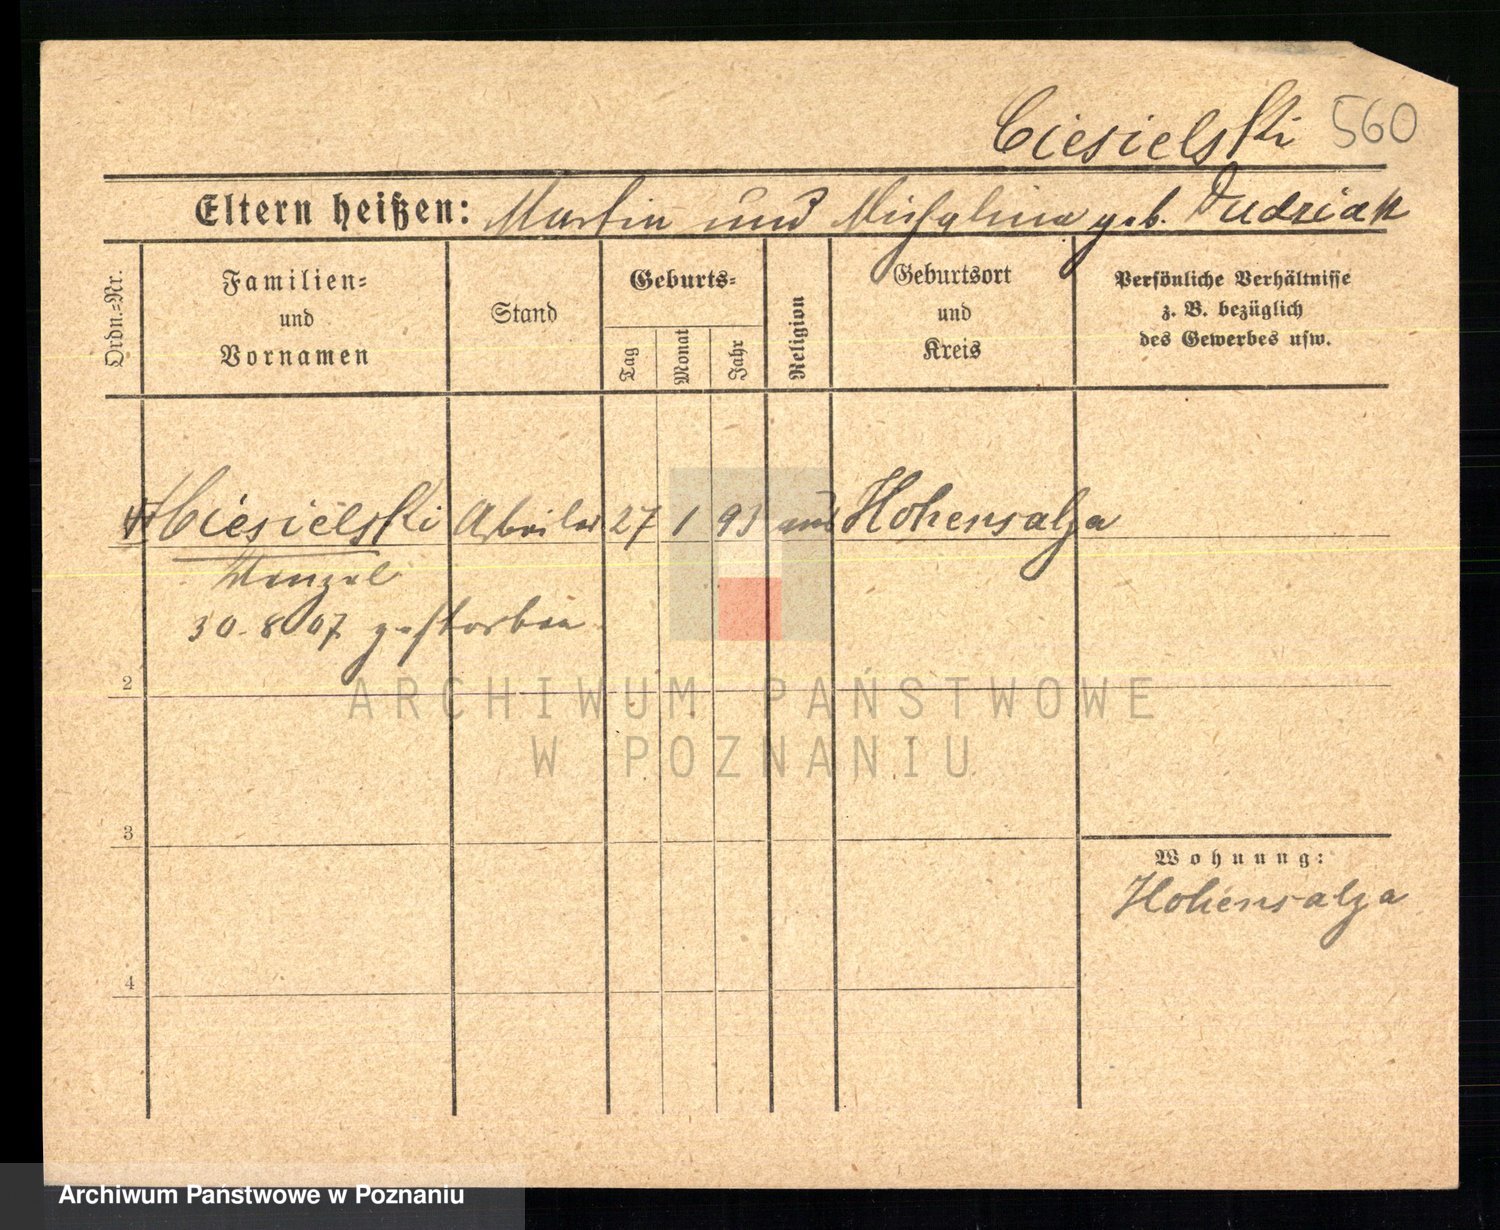 Ciesielski 560
Eltern heißen: Martin und Michalina geb. Dudziak
Ordn.-Nr.
Familien-
und
Vornamen
Stand
Geburts-
Tag
Monat
Jahr
Religion
Geburtsort
und
Kreis
Persönliche Verhältnisse
z. B. bezüglich
des Gewerbes usw.
Ciesielski Arbeiter 27 1 93 aus Hohensalza
Wenzel
30. 8. 07 gestorben
2
ARCHIWUM PAŃSTWOWE
W POZNANIU
3
Wohnung:
Hohensalza
4
Archiwum Państwowe w Poznaniu